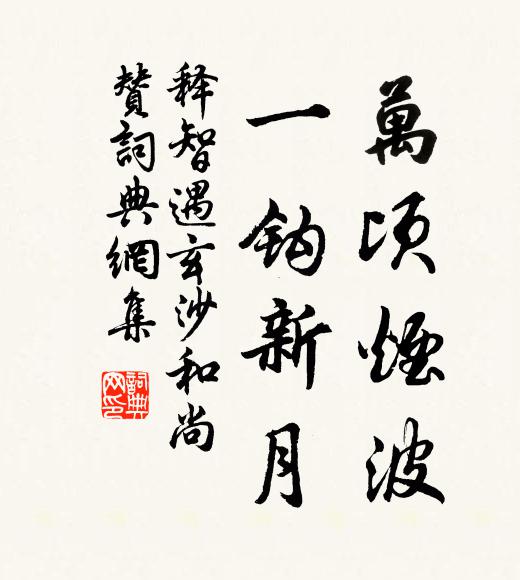 萬頃煙波
一鈎新月
释智遇玄沙和尚
贊詞典網集
詞典
网印